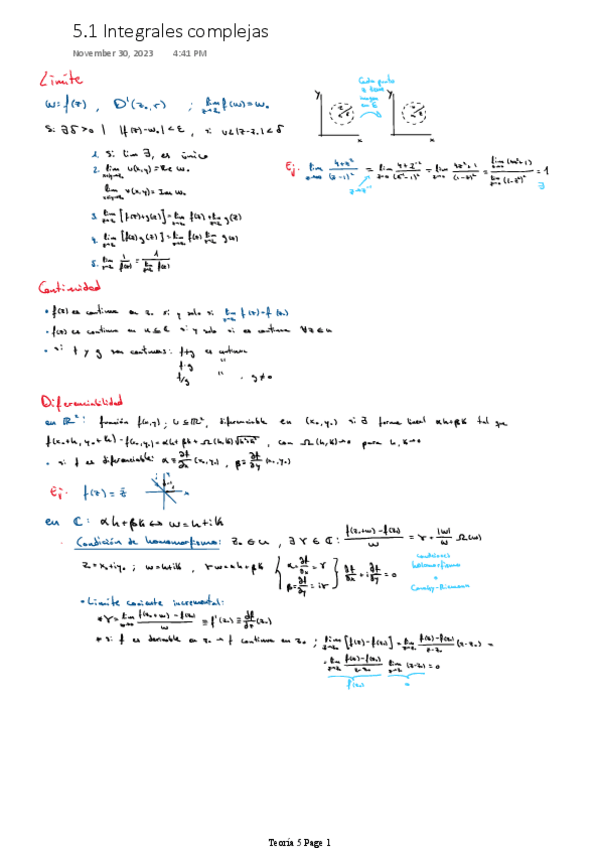 5.1 Integrales complejas
November 30, 2023 4:41 PM
Límite
w = f(z) , D'(z₀, r) ; lim f(w) = w₀
Si ∃ δ > 0 | |f(z) - w₀| < ε , si 0 < |z - z₀| < δ
Cada punto
y
x
y
x
1. Si lim ∃, es único
2. lim u(x,y) = Re w₀
lim v(x,y) = Im w₀
3. lim [f(z) + g(z)] = lim f(z) + lim g(z)
4. lim [f(z) g(z)] = lim f(z) lim g(z)
5. lim 1/f(z) = 1/lim f(z)
Ej. lim
= 1
∃
Continuidad
• f(z) es continua en z₀ si y solo si lim f(z) = f(z₀)
• f(z) es continua en u ⊆ ℂ si y solo si es continua ∀z ∈ u
• si f y g son continuas: f+g es continua
f·g "
f/g " , g ≠ 0
Diferenciabilidad
en ℝ²: función f(x,y) ; U ⊆ ℝ², diferenciable en (x₀,y₀) si ∃ forma lineal αh+βk tal que
f(x₀+h, y₀+k) - f(x₀,y₀) = αh + βk + Ω(h,k)√h²+k² , con Ω(h,k)→0 para h,k→0
• si f es diferenciable: α = ∂f/∂x (x₀,y₀) , β = ∂f/∂y (x₀,y₀)
Ej. f(z) = z̄
en ℂ: αh + βk ↔ w = h + ik
Condición de homomorfismo: z₀ ∈ u , ∃ γ ∈ ℂ: f(z₀+w) - f(z₀)/w = γ + |w|/w Ω(w)
z = x₀ + iy₀ ; w = h + ik , γw = αh + βk { α = ∂f/∂x = γ
β = ∂f/∂y = iγ } ∂f/∂x + i ∂f/∂y = 0
condiciones
holomorfismo
o
Cauchy-Riemann
• Límite cociente incremental:
* γ = lim f(z₀+w) - f(z₀)/w ≡ f'(z₀) ≡ df/dz (z₀)
* si f es derivable en z₀ → f continua en z₀ ; lim [f(z) - f(z₀)] = lim f(z) - f(z₀)/z - z₀ (z - z₀) =
= lim f(z) - f(z₀)/z - z₀ lim (z - z₀) = 0
f'(z₀) 0
Teoría 5 Page 1